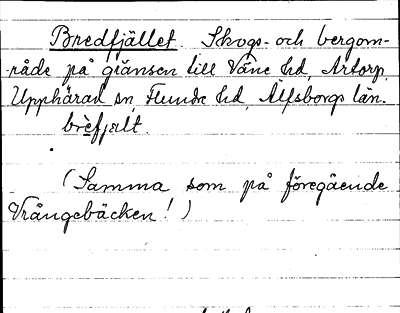 Bredfjället Skogs- och bergom-
råde på gränsen till Väne hd, Artorp,
Upphärad sn, Flundre hd, Älfsborgs län.
brefjælt.
(Samma som på föregående
Vrångebäcken!)